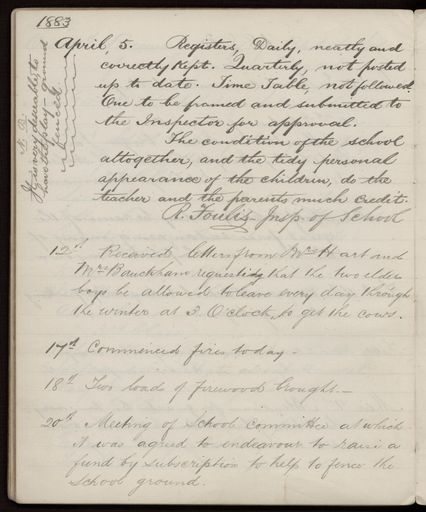 1883
April, 5. Registers, Daily, neatly and
correctly kept. Quarterly, not posted
up to date. Time Table, not followed
One to be framed and submitted to
the Inspector for approval.
The condition of the school
altogether, and the tidy personal
appearance of the children, do the
teacher and the parents much credit.
R. Foulis Insp. of School
N.B.
It is very desirable, to
have the play-ground
fenced
12th Received letters from Mrs Hart and
Mrs requesting that the two elder
boys be allowed to leave every day through
the winter at 3. O'clock, to get the cows.
17th Commenced fires today -
18th Two loads of firewood brought. -
20th Meeting of School committee at which
it was agreed to endeavour to raise a
fund by subscription to help to fence the
School ground.